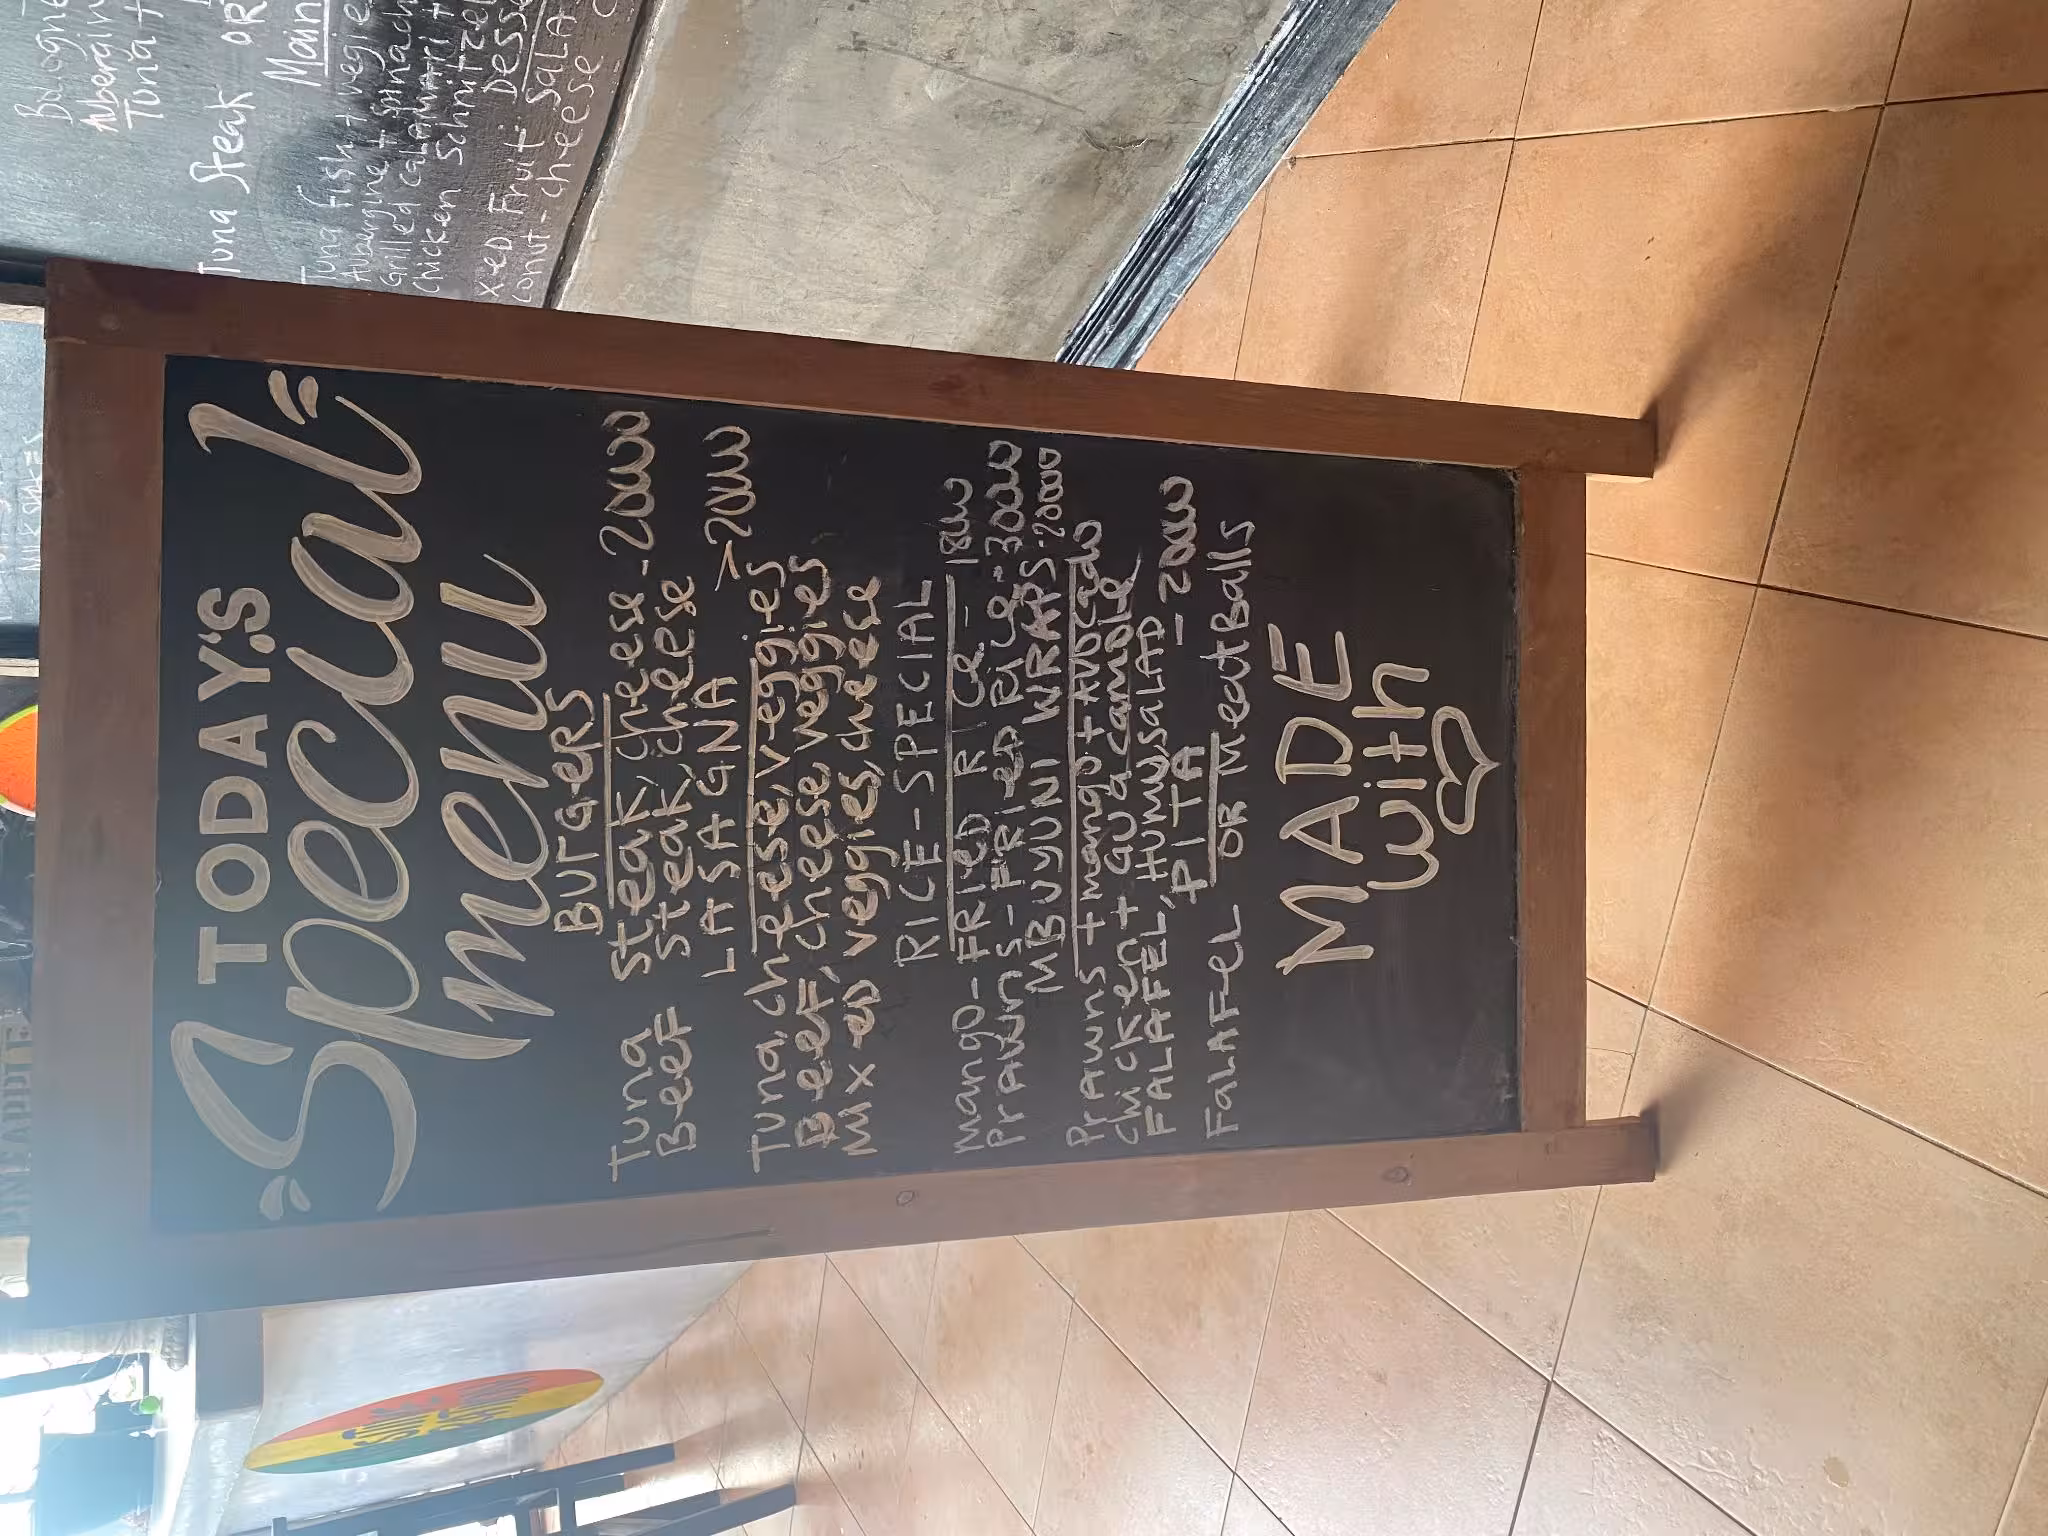 TODAY'S
Special
menu
BURGERS
Tuna Steak, cheese - 20000
BEEF Steak, cheese
LASAGNA
Tuna, cheese, veggies > 20000
BEEF, cheese veggies
Mixed veggies, cheese
RICE-SPECIAL
mango-FRIED RICE - 18000
Prawns-FRIED RICE - 30000
MBUYUNI WRAPS - 20000
Prawns + mango + AVOCADO
chicken + GUACAMOLE
FALAFEL, HUMUS, SALAD
PITA - 20000
FALAFEL OR MeatBalls
MADE
with
Tuna Steak OR
Main
Tuna Fish + vegie
Aubergine + Spinach
Grilled calamari +
Chicken Schnitzel
Desse
xed Fruit SALA
conut - cheese